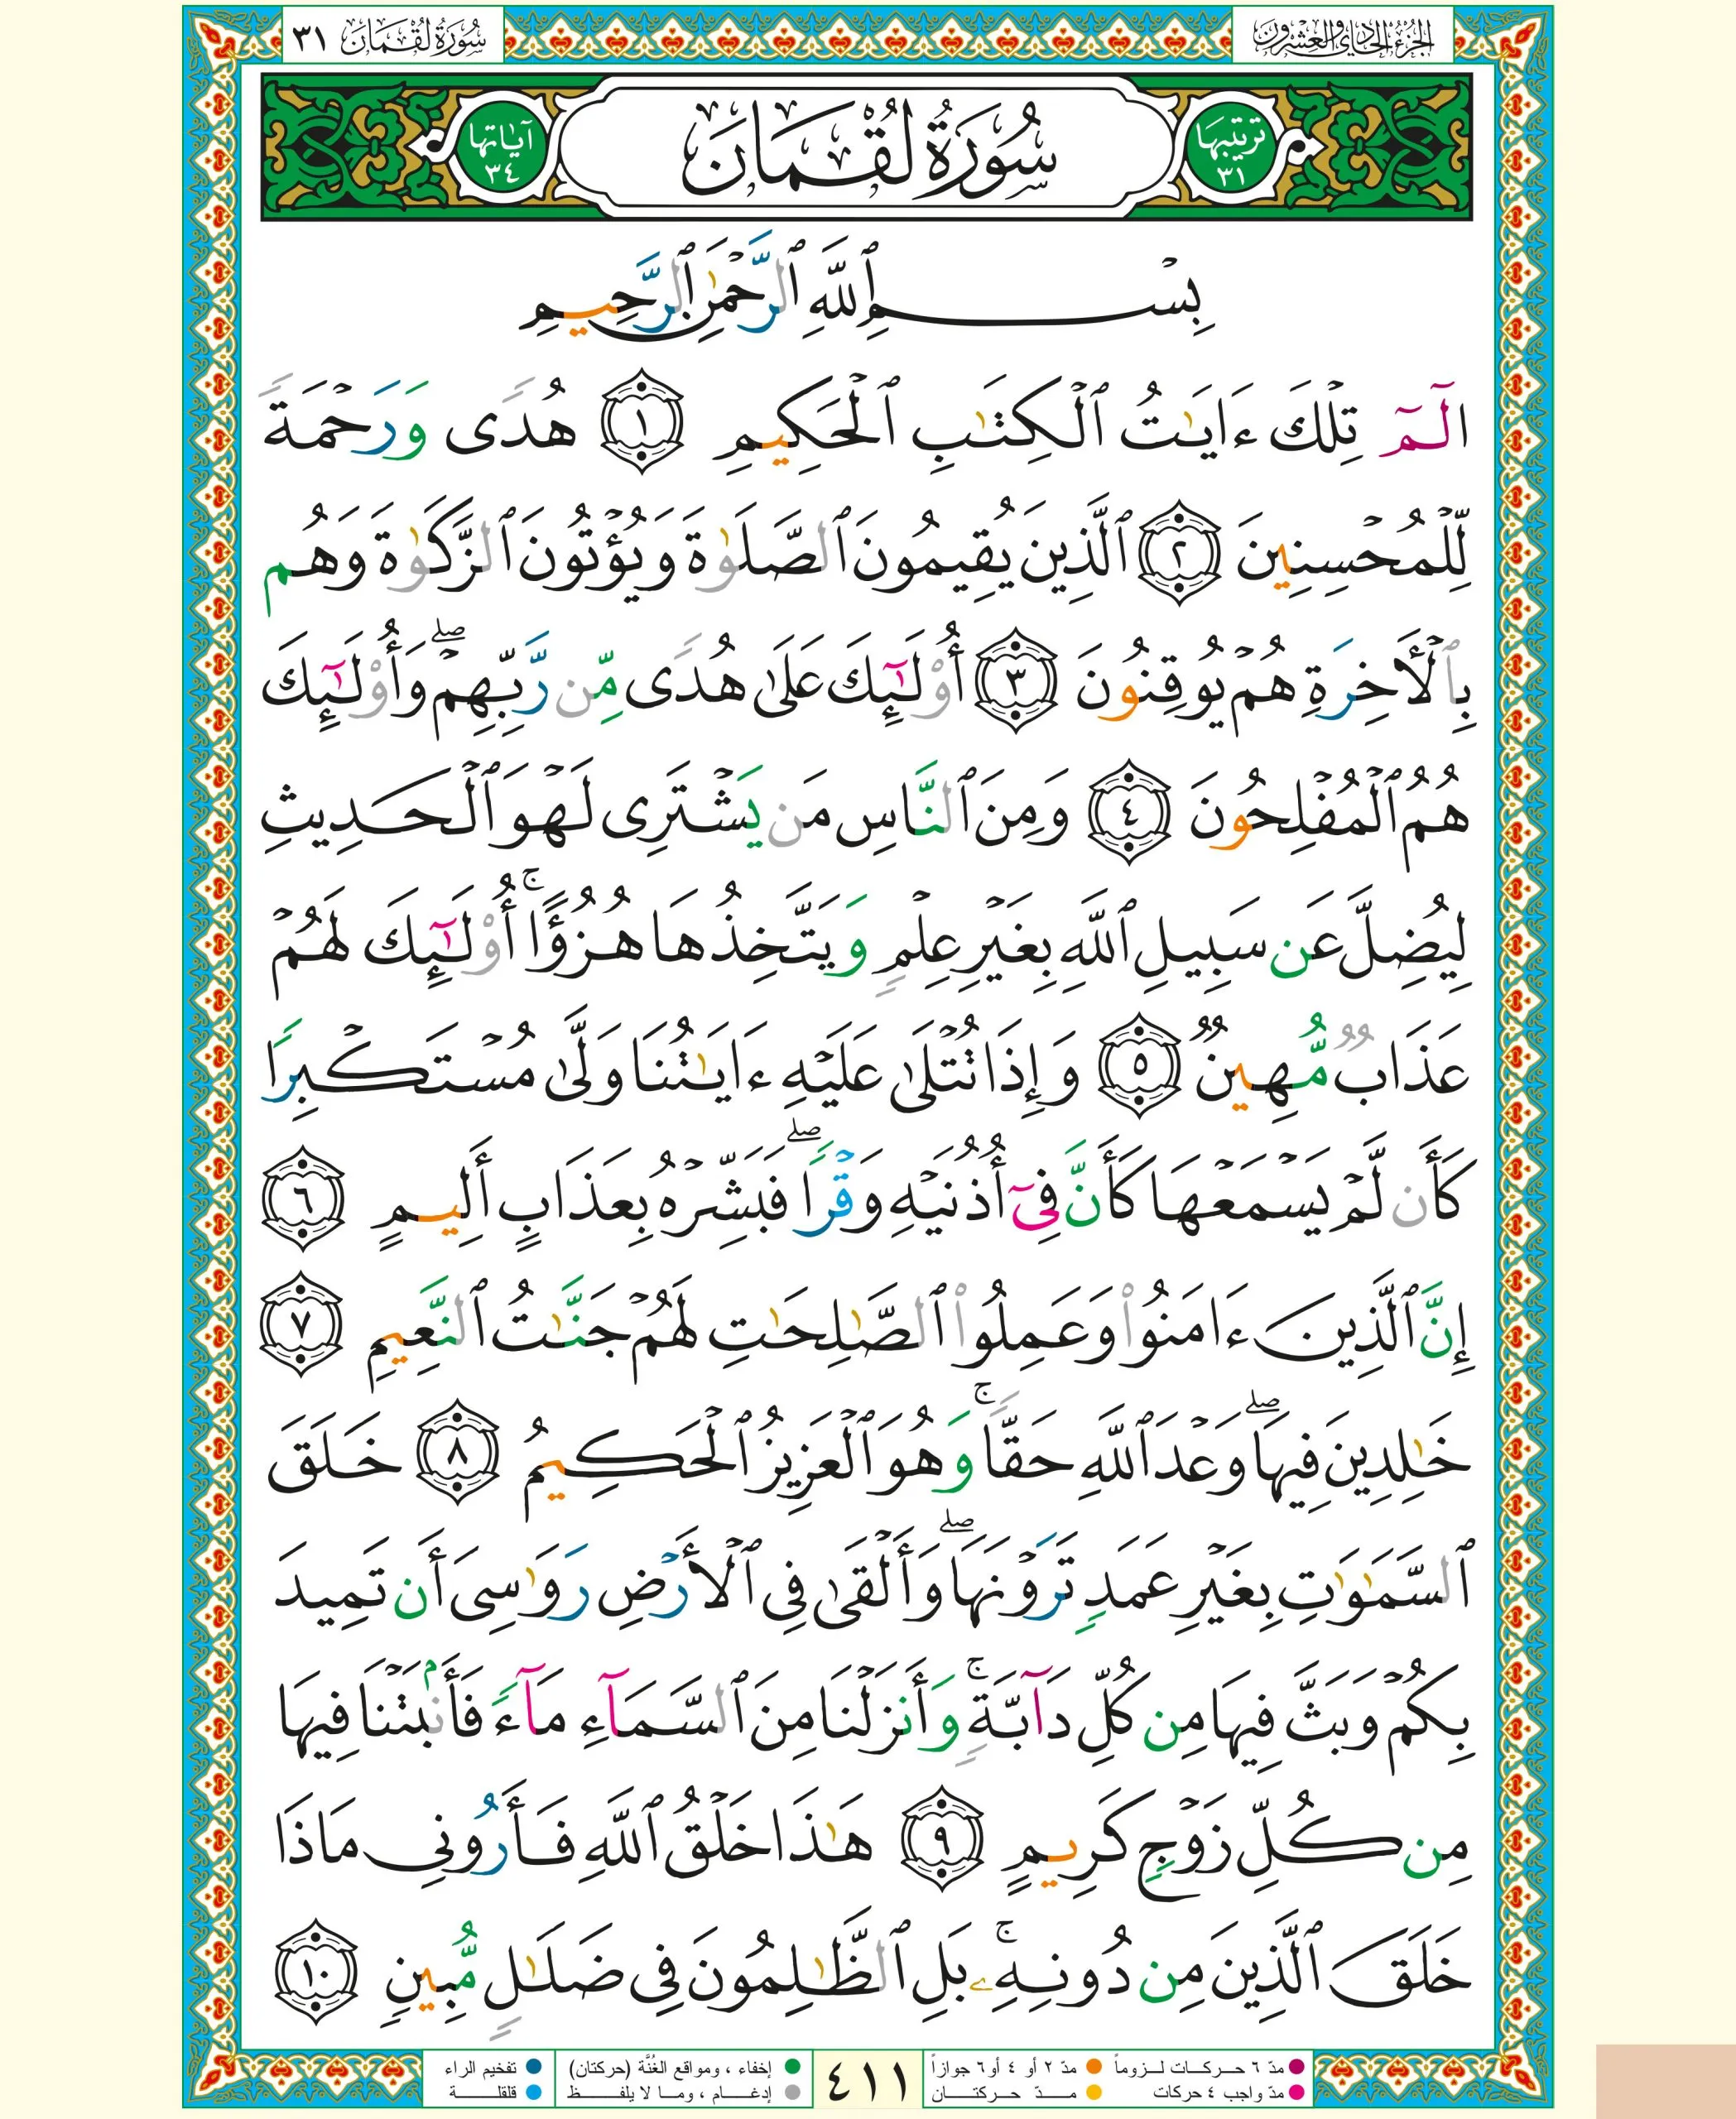 الجزء الحادي والعشرون
سُورَةُ لُقْمَان ٣١
ترتيبها ٣١
سُورَةُ لُقْمَانَ
آياتها ٣٤
بِسْمِ ٱللَّهِ ٱلرَّحْمَٰنِ ٱلرَّحِيمِ
الٓمٓ تِلْكَ ءَايَٰتُ ٱلْكِتَٰبِ ٱلْحَكِيمِ ١ هُدًى وَرَحْمَةً
لِّلْمُحْسِنِينَ ٢ ٱلَّذِينَ يُقِيمُونَ ٱلصَّلَوٰةَ وَيُؤْتُونَ ٱلزَّكَوٰةَ وَهُم
بِٱلْأَخِرَةِ هُمْ يُوقِنُونَ ٣ أُوْلَٰٓئِكَ عَلَىٰ هُدًى مِّن رَّبِّهِمْۖ وَأُوْلَٰٓئِكَ
هُمُ ٱلْمُفْلِحُونَ ٤ وَمِنَ ٱلنَّاسِ مَن يَشْتَرِى لَهْوَ ٱلْحَدِيثِ
لِيُضِلَّ عَن سَبِيلِ ٱللَّهِ بِغَيْرِ عِلْمٍ وَيَتَّخِذُهَا هُزُؤًاۚ أُوْلَٰٓئِكَ لَهُمْ
عَذَابٌ مُّهِينٌ ٥ وَإِذَا تُتْلَىٰ عَلَيْهِ ءَايَٰتُنَا وَلَّىٰ مُسْتَكْبِرًا
كَأَن لَّمْ يَسْمَعْهَا كَأَنَّ فِىٓ أُذُنَيْهِ وَقْرًاۖ فَبَشِّرْهُ بِعَذَابٍ أَلِيمٍ ٦
إِنَّ ٱلَّذِينَ ءَامَنُوا۟ وَعَمِلُوا۟ ٱلصَّٰلِحَٰتِ لَهُمْ جَنَّٰتُ ٱلنَّعِيمِ ٧
خَٰلِدِينَ فِيهَاۖ وَعْدَ ٱللَّهِ حَقًّاۚ وَهُوَ ٱلْعَزِيزُ ٱلْحَكِيمُ ٨ خَلَقَ
ٱلسَّمَٰوَٰتِ بِغَيْرِ عَمَدٍ تَرَوْنَهَاۖ وَأَلْقَىٰ فِى ٱلْأَرْضِ رَوَٰسِىَ أَن تَمِيدَ
بِكُمْ وَبَثَّ فِيهَا مِن كُلِّ دَآبَّةٍۚ وَأَنزَلْنَا مِنَ ٱلسَّمَآءِ مَآءً فَأَنۢبَتْنَا فِيهَا
مِن كُلِّ زَوْجٍ كَرِيمٍ ٩ هَٰذَا خَلْقُ ٱللَّهِ فَأَرُونِى مَاذَا
خَلَقَ ٱلَّذِينَ مِن دُونِهِۦۚ بَلِ ٱلظَّٰلِمُونَ فِى ضَلَٰلٍ مُّبِينٍ ١٠
مدّ ٦ حركات لزوماً مدّ ٢ أو ٤ أو ٦ جوازاً
مدّ واجب ٤ حركات مدّ حركتان
٤١١
إخفاء ، ومواقع الغُنَّة (حركتان) تفخيم الراء
إدغام ، وما لا يلفظ قلقلة